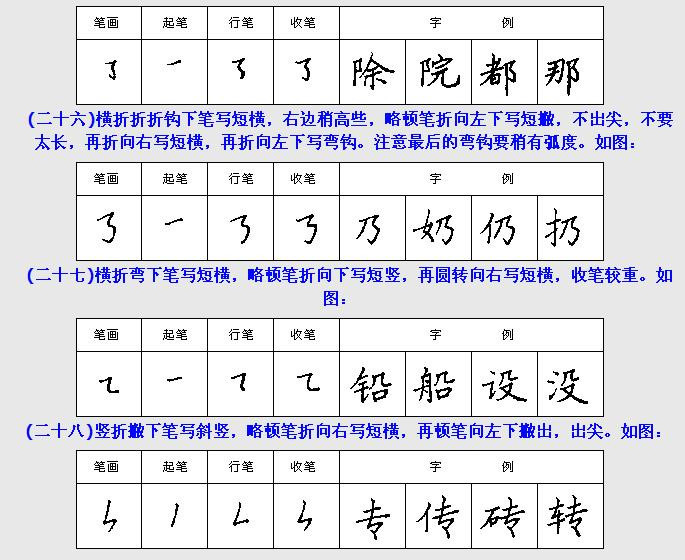 笔画 起笔 行笔 收笔 字 例
除 院 都 那
(二十六)横折折折钩下笔写短横，右边稍高些，略顿笔折向左下写短撇，不出尖，不要
太长，再折向右写短横，再折向左下写弯钩。注意最后的弯钩要稍有弧度。如图：
笔画 起笔 行笔 收笔 字 例
乃 奶 仍 扔
(二十七)横折弯下笔写短横，略顿笔折向下写短竖，再圆转向右写短横，收笔较重。如
图：
笔画 起笔 行笔 收笔 字 例
铅 船 设 没
(二十八)竖折撇下笔写斜竖，略顿笔折向右写短横，再顿笔向左下撇出，出尖。如图：
笔画 起笔 行笔 收笔 字 例
专 传 砖 转